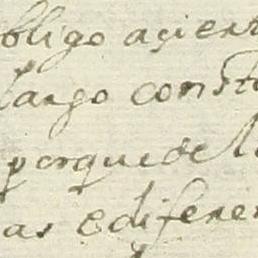 bligo açient
largo const
porque de l
as e diferen